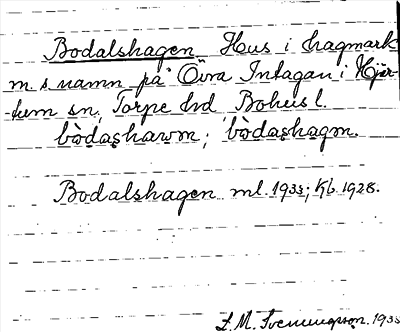 Bodalshagen Hus i hagmark
m. s. namn på Övra Intagan i Hjär-
tum sn, Torpe hd Bohusl.
bòdaʂhawm; bòdaʂhagm.
Bodalshagen ml. 1933; Kb. 1928.
L. M. Svenungsson. 1933